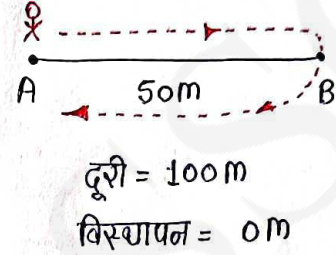 A 50m B
दूरी = 100m
विस्थापन = 0m